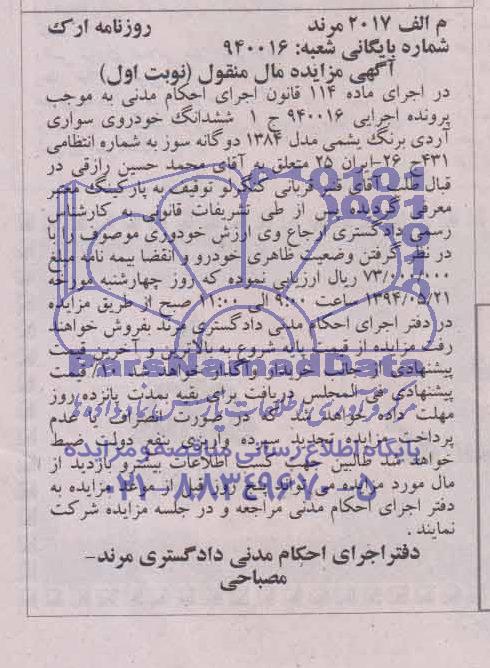 م الف ۲۰۱۷ مرند روزنامه ارک
شماره بایگانی شعبه: ۹۴۰۰۱۶
آگهی مزایده مال منقول (نوبت اول)
در اجرای ماده ۱۱۴ قانون اجرای احکام مدنی به موجب
پرونده اجرایی ۹۴۰۰۱۶ ج ۱ ششدانگ خودروی سواری
آردی برنگ یشمی مدل ۱۳۸۴ دوگانه سوز به شماره انتظامی
۴۳۱ج ۲۶-ایران ۲۵ متعلق به آقای محمد حسین رازقی در
قبال طلب آقای قنبر قربانی کنگرلو توقیف به پارکینگ
معرفی گردیده پس از طی تشریفات قانونی به کارشناس
رسمی دادگستری ارجاع وی ارزش خودروی موصوف را با
در نظر گرفتن وضعیت ظاهری خودرو و انقضا بیمه نامه مبلغ
۷۳/۰۰۰/۰۰۰ ریال ارزیابی نموده که روز چهارشنبه مورخه
۱۳۹۴/۰۵/۲۱ ساعت ۹:۰۰ الی ۱۱:۰۰ صبح از طریق مزایده
در دفتر اجرای احکام مدنی دادگستری مرند بفروش خواهند
رفت مزایده از قیمت پایه شروع به بالاترین و آخرین قیمت
پیشنهادی از جانب خریدار واگذار خواهد شد ۱۰٪ قیمت
پیشنهادی فی المجلس دریافت برای بقیه بمدت پانزده روز
مهلت داده خواهد شد که در صورت انصراف یا عدم
پرداخت مزایده تجدید سپرده واریزی بنفع دولت ضبط
خواهد شد طالبین جهت کسب اطلاعات بیشتر و بازدید از
مال مورد مزایده می توانند پنج روز قبل از موعد مزایده به
دفتر اجرای احکام مدنی مراجعه و در جلسه مزایده شرکت
نمایند .
دفتر اجرای احکام مدنی دادگستری مرند-
مصباحی
ParsNamadData
مرکز فرآوری اطلاعات پارس نماد داده ها
پایگاه اطلاع رسانی مناقصه و مزایده
۰۲۱-۸۸۳۴۹۶۷۰-۵